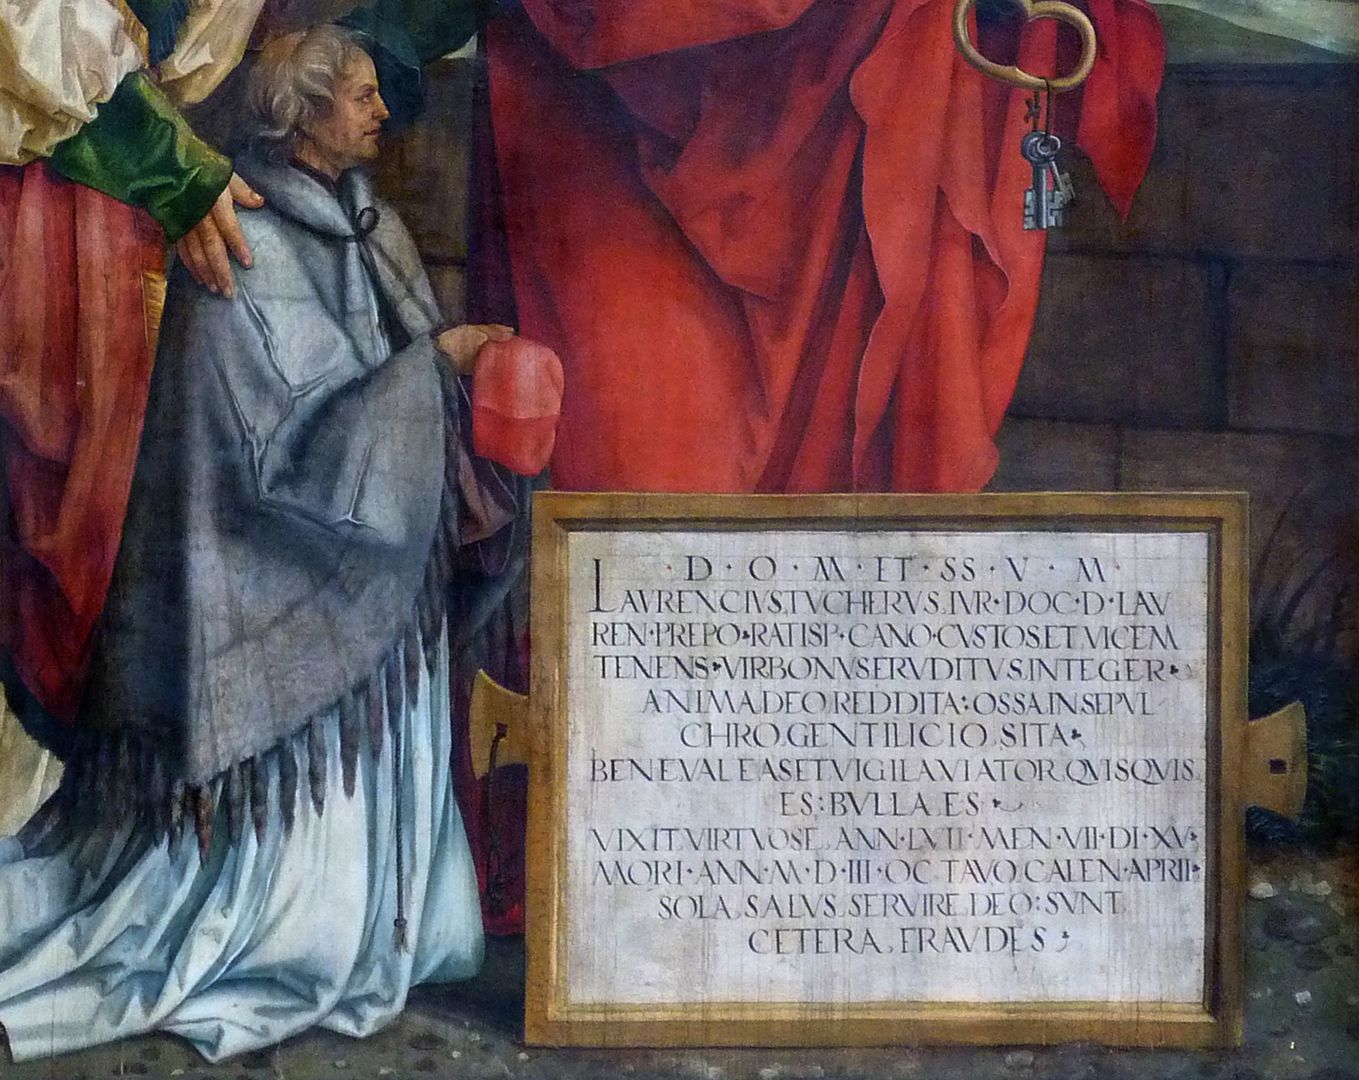 D · O · M · ET · SS · V · M ·
LAVRENCIVS TVCHERVS IVR · DOC · D · LAV
REN · PREPO · RATISP · CANO · CVSTOS ET VICEM
TENENS · VIR BONVS ERVDITVS INTEGER ·
ANIMA DEO REDDITA : OSSA IN SEPVL
CHRO GENTILICIO SITA ·
BENE VALEAS ET VIGILA VIATOR QVISQVIS
ES : BVLLA ES ·
VIXIT VIRTVOSE ANN · LVII · MEN · VII · DI · XV ·
MORI · ANN · M · D · III · OCTAVO CALEN · APRII ·
SOLA SALVS SERVIRE DEO : SVNT
CETERA FRAVDES ·